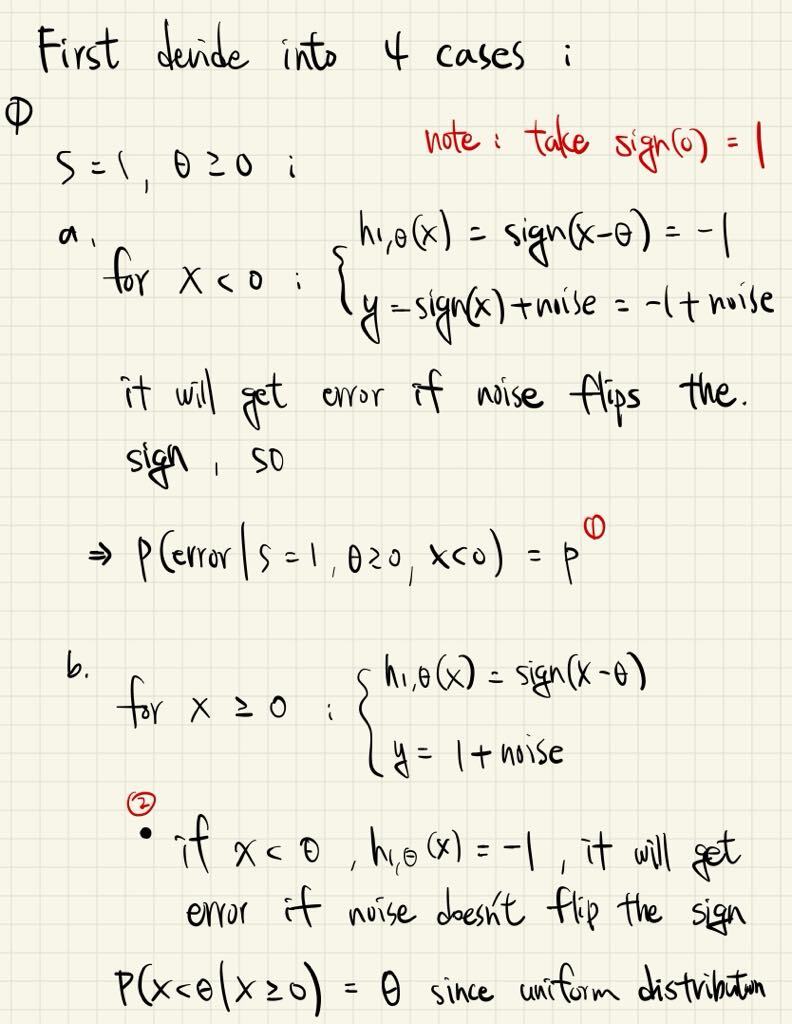 First devide into 4 cases :
①
note : take sign(0) = 1
S = 1, θ ≥ 0 :
a.
for x < 0 : { h₁,θ(x) = sign(x-θ) = -1
y = sign(x) + noise = -1 + noise
it will get error if noise flips the.
sign, so
⇒ P(error | s = 1, θ≥0, x<0) = p ①
b.
for x ≥ 0 : { h₁,θ(x) = sign(x-θ)
y = 1 + noise
②
• if x < θ, h₁,θ(x) = -1, it will get
error if noise doesn't flip the sign
P(x<θ | x ≥ 0) = θ since uniform distribution